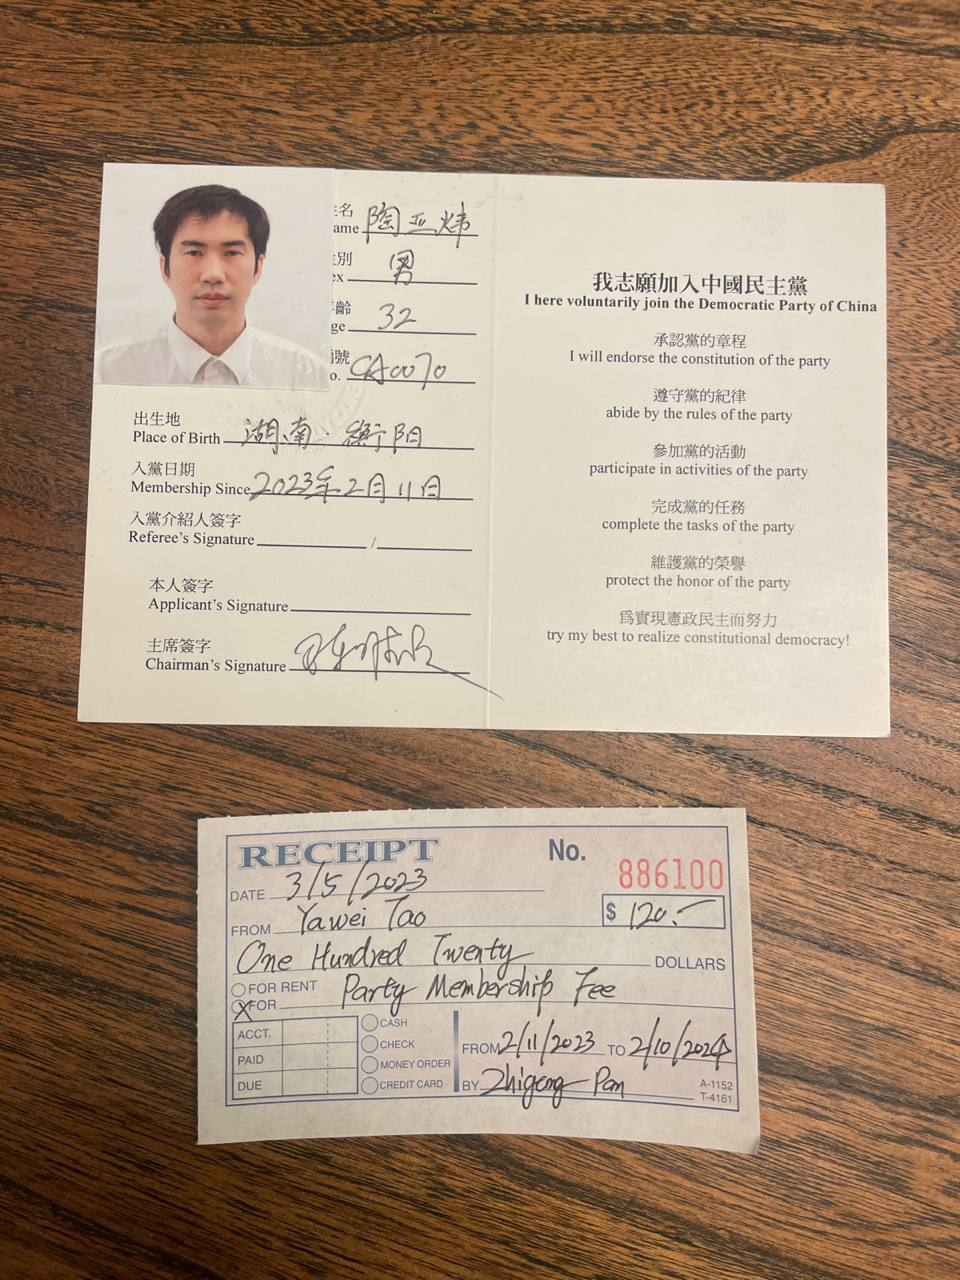 名 陶亚炜
ame
別 男
ex
齡 32
ge
號 CA0070
o.
出生地
Place of Birth 湖南·衡阳
入黨日期
Membership Since 2023年2月11日
入黨介紹人簽字
Referee's Signature /
本人簽字
Applicant's Signature
主席簽字
Chairman's Signature
我志願加入中國民主黨
I here voluntarily join the Democratic Party of China
承認黨的章程
I will endorse the constitution of the party
遵守黨的紀律
abide by the rules of the party
參加黨的活動
participate in activities of the party
完成黨的任務
complete the tasks of the party
維護黨的榮譽
protect the honor of the party
爲實現憲政民主而努力
try my best to realize constitutional democracy!
RECEIPT No. 886100
DATE 3/5/2023
FROM Yawei Tao $ 120.-
One Hundred Twenty DOLLARS
FOR RENT
X FOR Party Membership Fee
ACCT.
PAID
DUE
CASH
CHECK
MONEY ORDER
CREDIT CARD
FROM 2/11/2023 TO 2/10/2024
BY Zhigang Pan
A-1152
T-4161